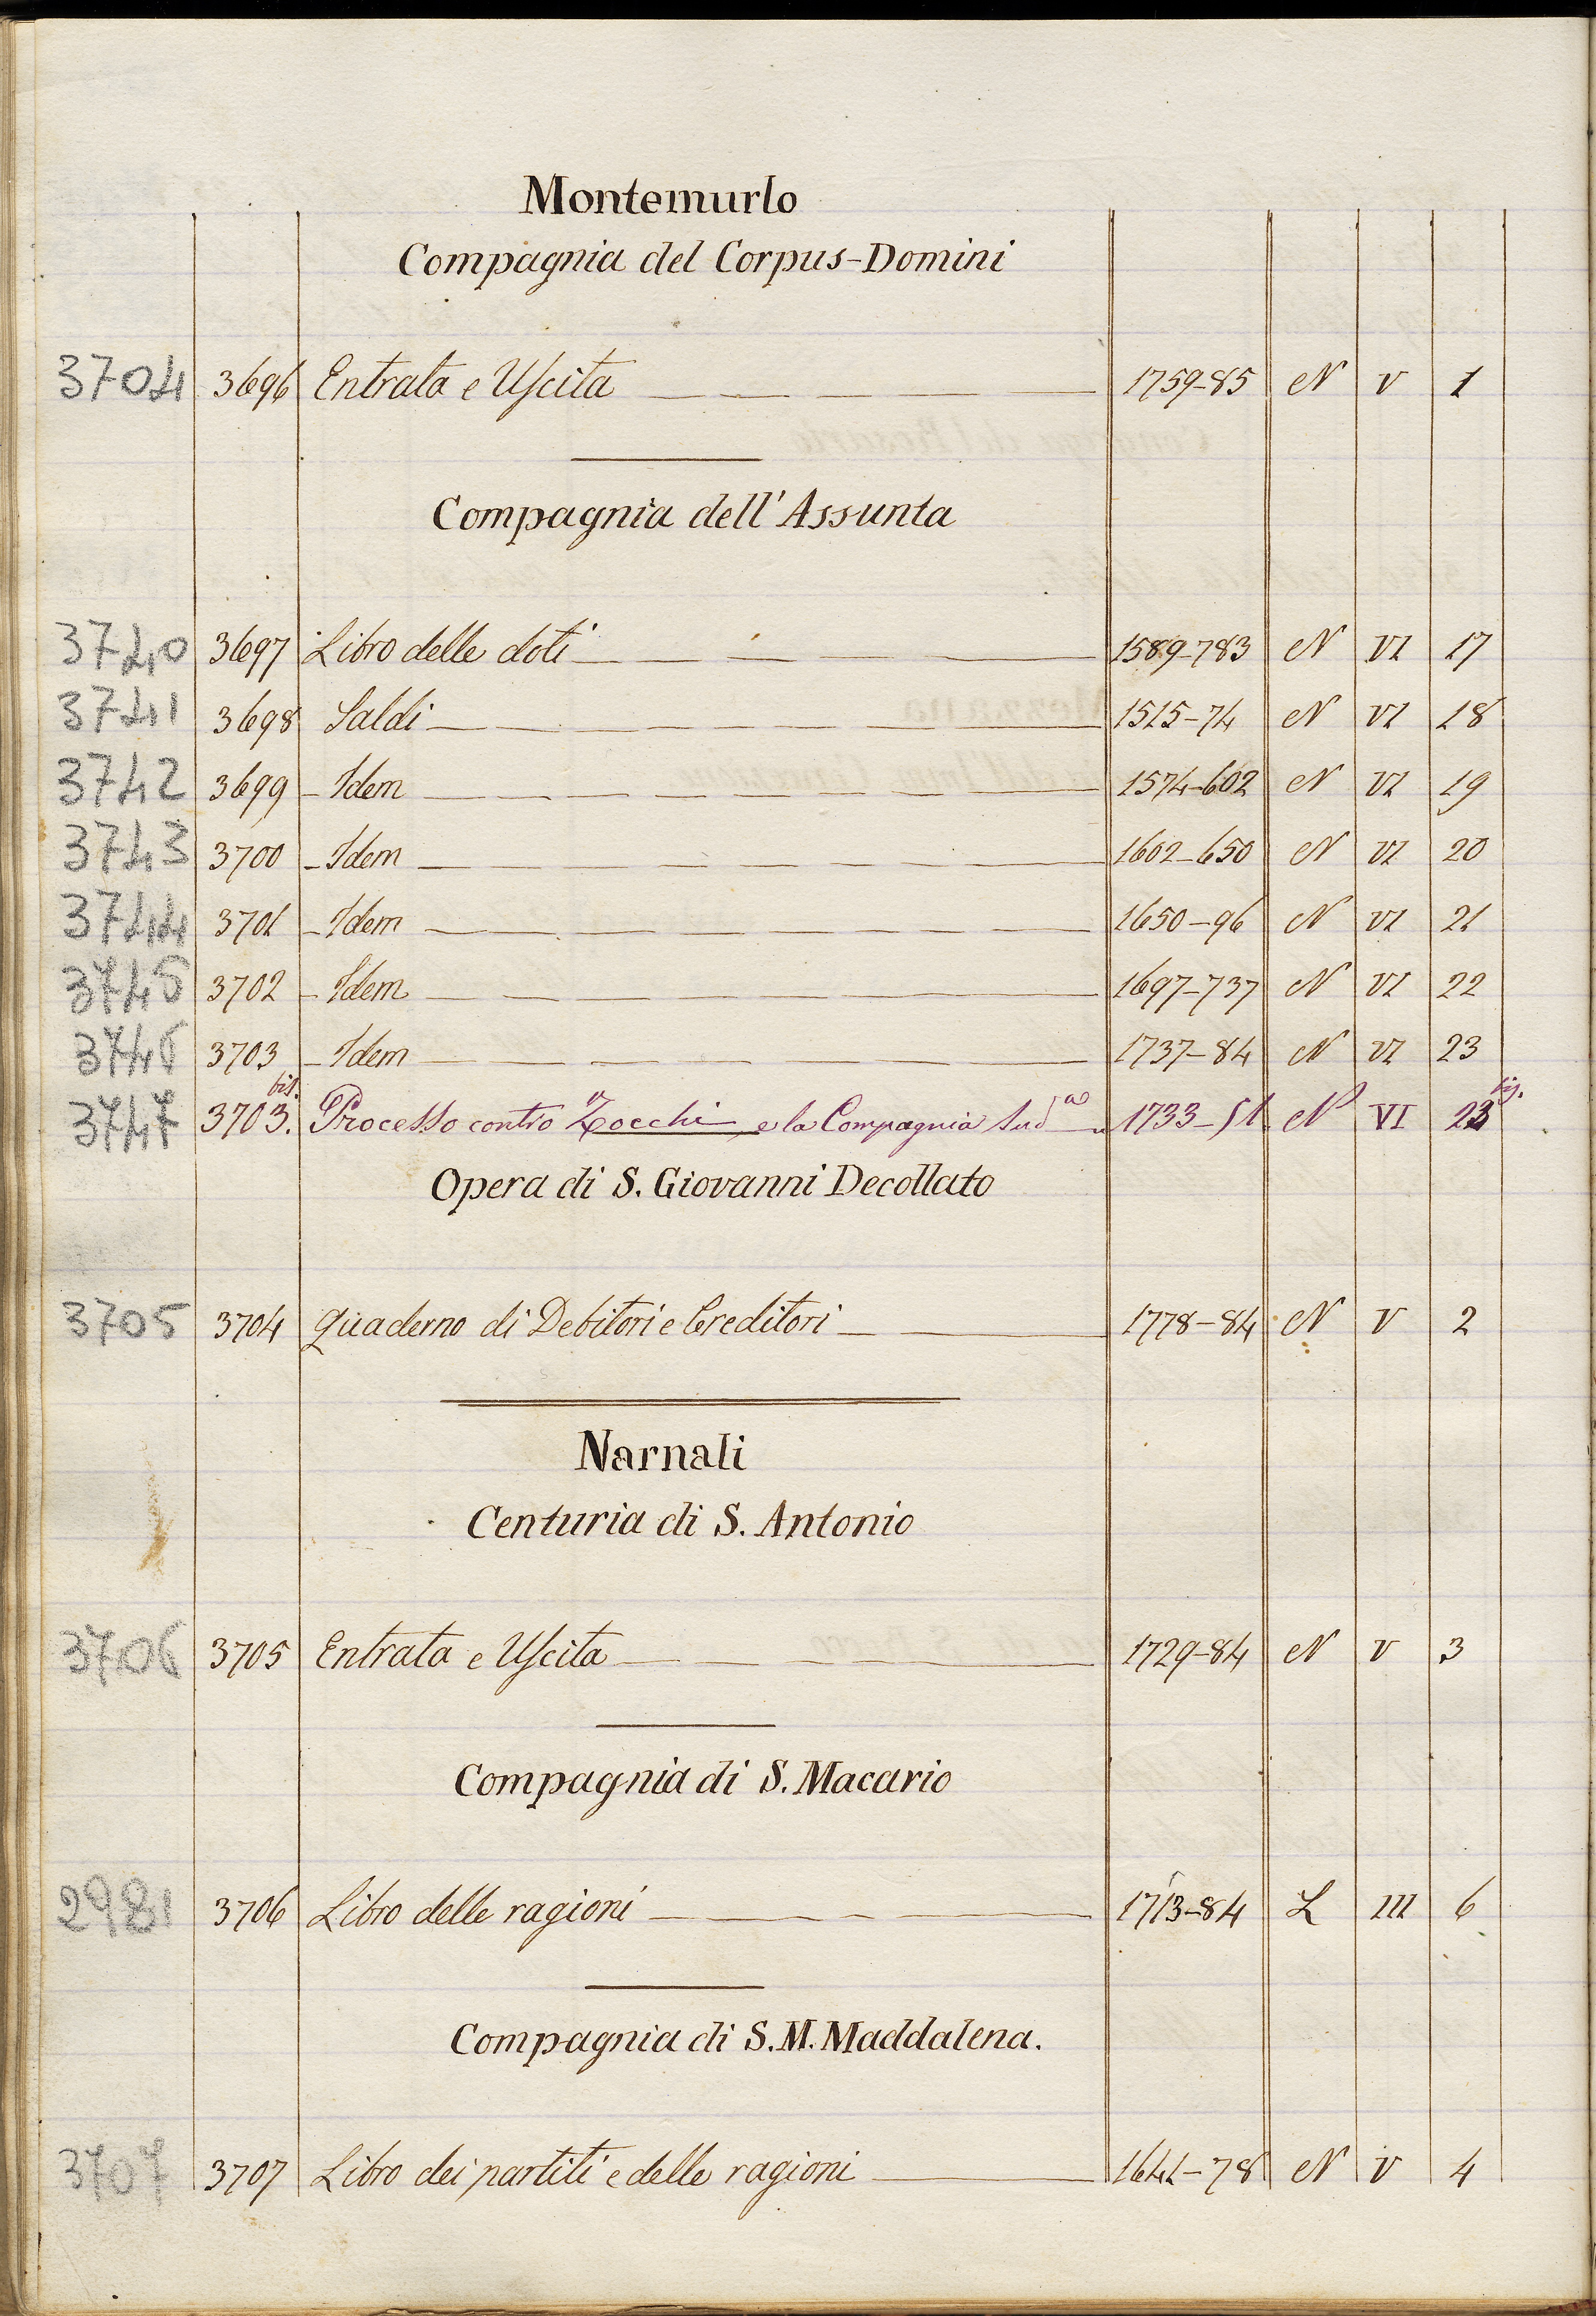 Montemurlo
Compagnia del Corpus-Domini
3704 3696 Entrata e Uscita 1759-85 N V 1
Compagnia dell'Assunta
3740 3697 Libro delle doti 1589-783 N VI 17
3741 3698 Saldi 1515-74 N VI 18
3742 3699 Idem 1574-602 N VI 19
3743 3700 Idem 1602-650 N VI 20
3744 3701 Idem 1650-96 N VI 21
3745 3702 Idem 1697-737 N VI 22
3746 3703 Idem 1737-84 N VI 23
3747 3703 bis. Processo contro Zocchi e la Compagnia sudᵃ 1733-51 N VI 23 bis.
Opera di S. Giovanni Decollato
3705 3704 Quaderno di Debitori e Creditori 1778-84 N V 2
Narnali
Centuria di S. Antonio
3706 3705 Entrata e Uscita 1729-84 N V 3
Compagnia di S. Macario
2981 3706 Libro delle ragioni 1713-84 L III 6
Compagnia di S. M. Maddalena.
3707 3707 Libro dei partiti e delle ragioni 1641-78 N V 4